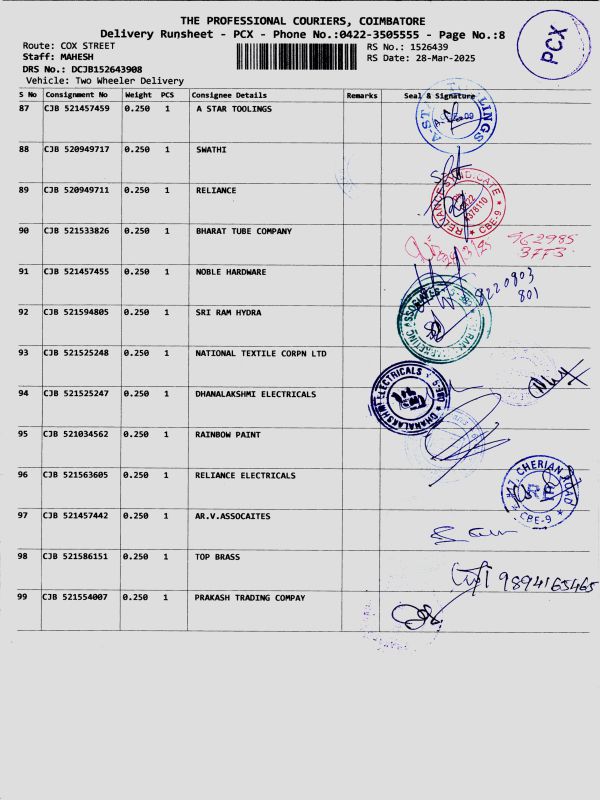 THE PROFESSIONAL COURIERS, COIMBATORE
Delivery Runsheet - PCX - Phone No.:0422-3505555 - Page No.:8
PCX
Route: COX STREET
RS No.: 1526439
Staff: MAHESH
RS Date: 28-Mar-2025
DRS No.: DCJB152643908
Vehicle: Two Wheeler Delivery
S No Consignment No Weight PCS Consignee Details Remarks Seal & Signature
87 CJB 521457459 0.250 1 A STAR TOOLINGS
88 CJB 520949717 0.250 1 SWATHI
89 CJB 520949711 0.250 1 RELIANCE
RELIANCE SYNDICATE
★ CBE-9 ★
90 CJB 521533826 0.250 1 BHARAT TUBE COMPANY
962985
91 CJB 521457455 0.250 1 NOBLE HARDWARE
9220803
801
92 CJB 521594805 0.250 1 SRI RAM HYDRA
93 CJB 521525248 0.250 1 NATIONAL TEXTILE CORPN LTD
94 CJB 521525247 0.250 1 DHANALAKSHMI ELECTRICALS
DHANALAKSHMI ELECTRICALS
95 CJB 521034562 0.250 1 RAINBOW PAINT
96 CJB 521563605 0.250 1 RELIANCE ELECTRICALS
CHERIAN ROAD
★ CBE-9 ★
97 CJB 521457442 0.250 1 AR.V.ASSOCAITES
98 CJB 521586151 0.250 1 TOP BRASS
9894165465
99 CJB 521554007 0.250 1 PRAKASH TRADING COMPAY